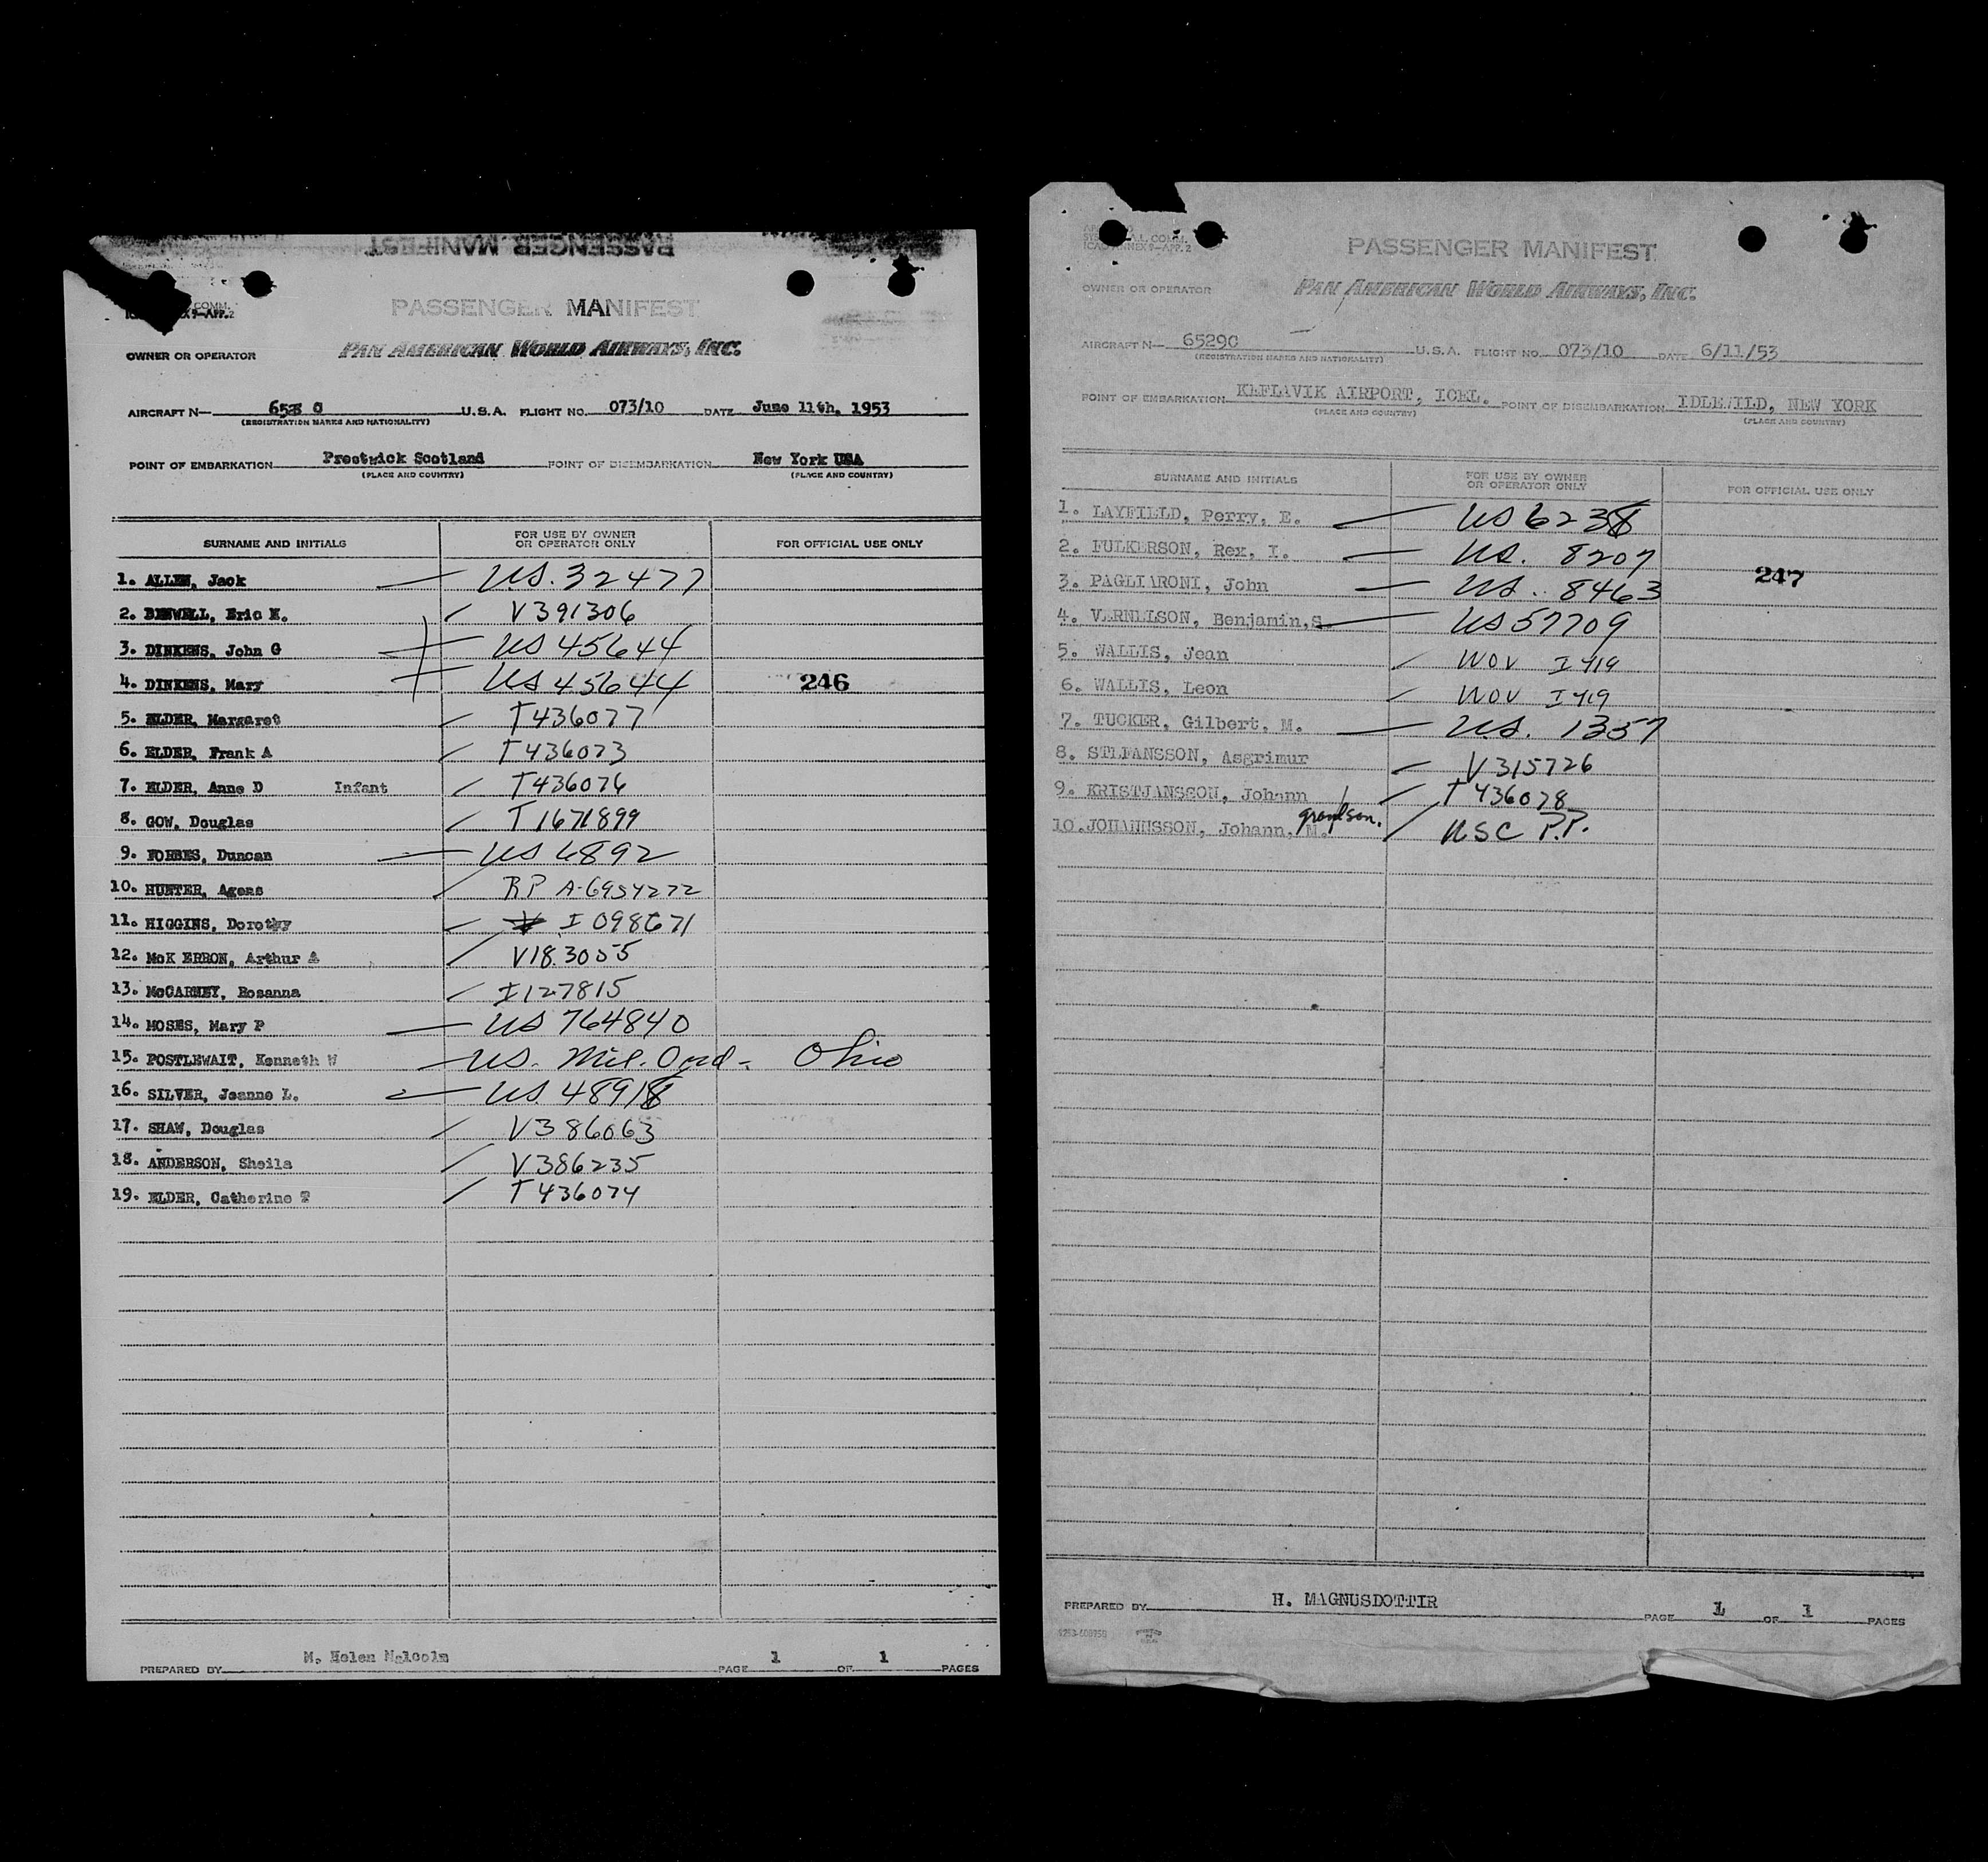 PASSENGER MANIFEST
COMM.
EX 9—APP. 2
PASSENGER MANIFEST
OWNER OR OPERATOR PAN AMERICAN WORLD AIRWAYS, INC.
AIRCRAFT N— U.S.A. FLIGHT NO. 073/10 DATE June 11th, 1953
(REGISTRATION MARKS AND NATIONALITY)
POINT OF EMBARKATION Prestwick Scotland POINT OF DISEMBARKATION New York USA
(PLACE AND COUNTRY) (PLACE AND COUNTRY)
SURNAME AND INITIALS FOR USE BY OWNER OR OPERATOR ONLY FOR OFFICIAL USE ONLY
1. ALLEN, Jack US. 32477
2. Eric V391306
3. DINKENS, John G US 45644
4. DINKENS, Mary US 45644 246
5. ELDER, Margaret T436077
6. ELDER, Frank A T436073
7. ELDER, Anne D Infant T436076
8. GOW, Douglas T1671899
9. FORBES, Duncan US 6892
10. HUNTER, Agens RP A-6954272
11. HIGGINS, Dorothy I 098671
12. McK ERRON, Arthur A V183055
13. McCARNEY, Rosanna I127815
14. MOSES, Mary P US 764840
15. POSTLEWAIT, Kenneth W US. Mil. Ord- Ohio
16. SILVER, Jeanne L. US. 48918
17. SHAW, Douglas V386063
18. ANDERSON, Sheila V386235
19. ELDER, Catherine T T436074
PREPARED BY M. Helen Malcolm PAGE 1 OF 1 PAGES
PASSENGER MANIFEST
OWNER OR OPERATOR PAN AMERICAN WORLD AIRWAYS, INC.
AIRCRAFT N— 6529C U.S.A. FLIGHT NO. 073/10 DATE 6/11/53
(REGISTRATION MARKS AND NATIONALITY)
POINT OF EMBARKATION KEFLAVIK AIRPORT, ICEL. POINT OF DISEMBARKATION IDLEWILD, NEW YORK
(PLACE AND COUNTRY) (PLACE AND COUNTRY)
SURNAME AND INITIALS FOR USE BY OWNER OR OPERATOR ONLY FOR OFFICIAL USE ONLY
1. LAYFIELD, Perry, E. US 6238
2. FULKERSON, Rex, I. US. 8207
3. PAGLIARONI, John US. 8463 247
4. VERNELSON, Benjamin,S. US 57709
5. WALLIS, Jean WOV I 419
6. WALLIS, Leon WOV I 419
7. TUCKER, Gilbert, M. US. 1357
8. STEFANSSON, Asgrimur V315726
9. KRISTJANSSON, Johann T436078
grandson.
10. JOHANNSSON, Johann, M. USC P.P.
PREPARED BY H. MAGNUSDOTTIR PAGE 1 OF 1 PAGES